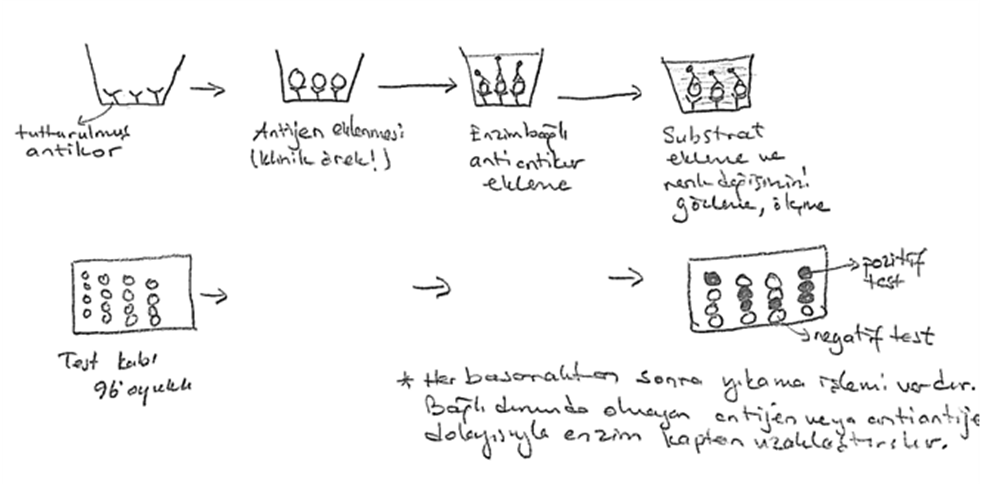 tutturulmuş
antikor
Antijen eklenmesi
(klinik örek!)
Enzim bağlı
anti antikor
ekleme
Substrat
ekleme ve
renk değişimini
gözleme, ölçme
Test kabı
96 oyuklu
pozitif
test
negatif test
* Her basamaktan sonra yıkama işlemi vardır.
Bağlı durumda olmayan antijen veya antiantije
dolayısıyla enzim kaptan uzaklaştırılır.